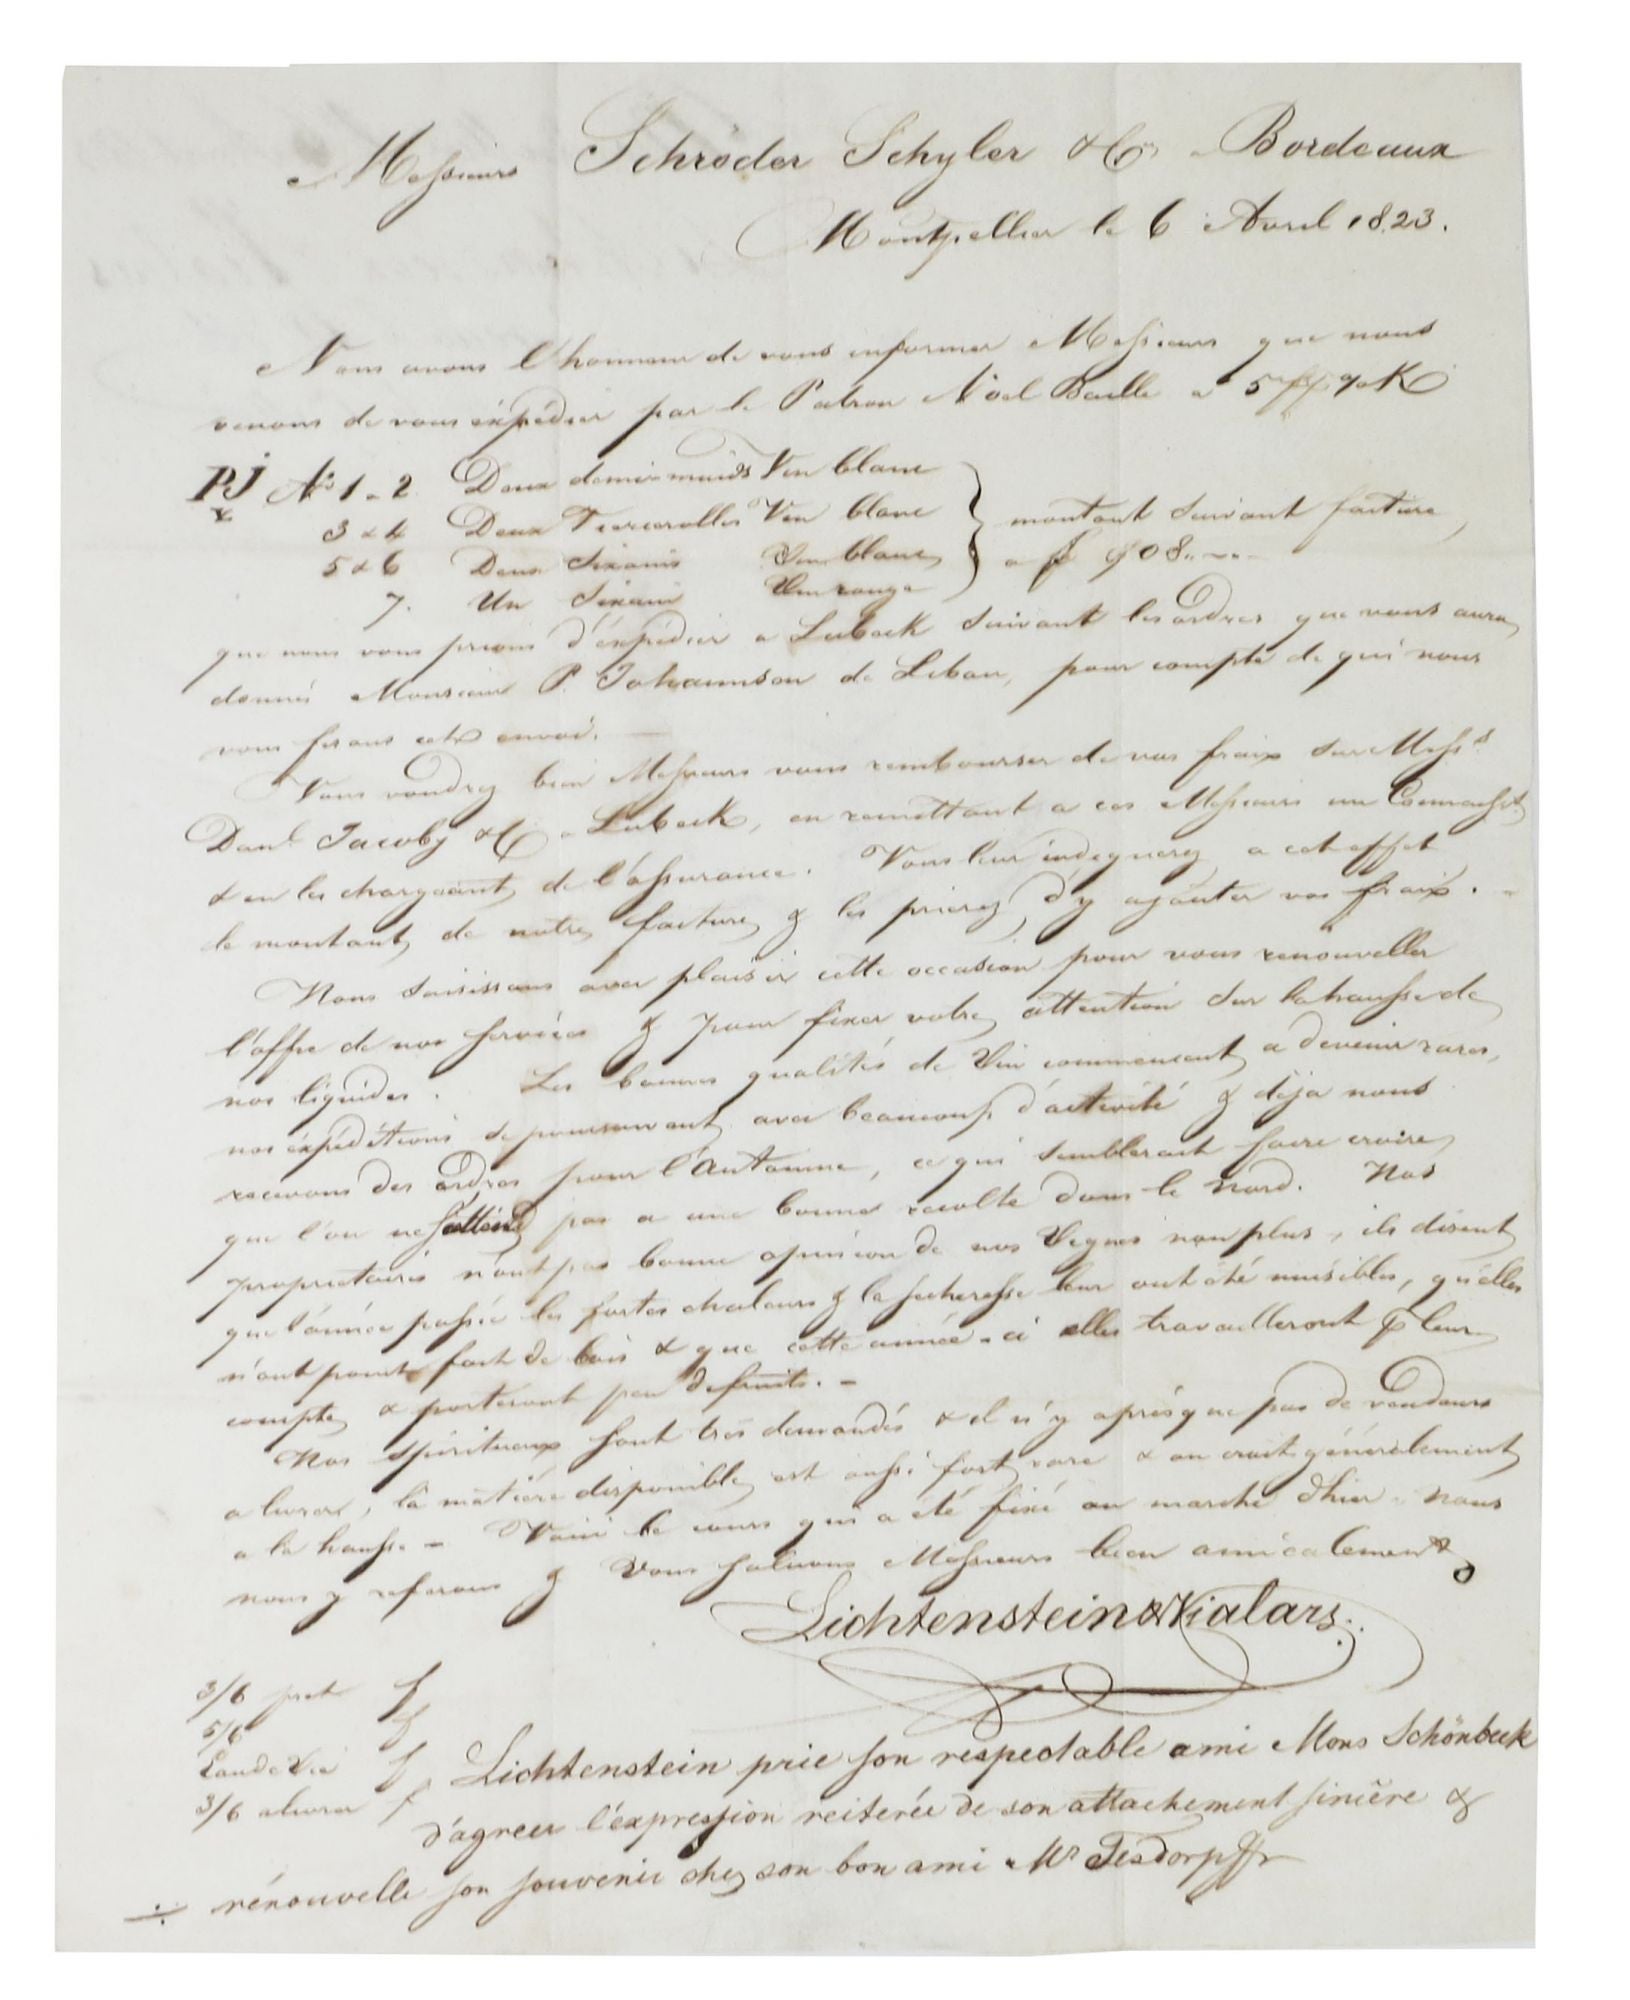 Messieurs Schröder Schyler & Co Bordeaux
Montpellier le 6 Avril 1823.
Nous avons l'honneur de vous informer Messieurs que nous
venons de vous éxpédier par le Patron Noel Baille a 5 % K
PJ Nos 1 - 2 Deux demi-muids Vin blanc
3 & 4 Deux Tiercerolles Vin blanc
5 & 6 Deux Sixains Vin blanc
7. Un Sixain Vin rouge
montant suivant facture
a f 908..
que nous vous prions d'éxpédier a Lubeck suivant les ordres que vous aura
donnés Monsieur P. Johannson de Libau, pour compte de qui nous
vous fesons cet envoi.
Vous voudrez bien Messieurs vous rembourser de vos fraix sur Messrs
Danl Jacoby & Co a Lubeck, en remettant a ces Messieurs un Connaisst
& en les chargeant de l'assurance. Vous leur indiquerez a cet effet
le montant de notre facture & les prierez d'y ajouter vos fraix. -
Nous saisissons avec plaisir cette occasion pour vous renouveller
l'offre de nos services & pour fixer votre attention sur la hausse de
nos liquides. Les bonnes qualités de Vin commencent a devenir rares,
nos éxpéditions se poursuivent avec beaucoup d'activité & déja nous
recevons des ordres pour l'Automne, ce qui semblerait faire croire
que l'on ne s'attend pas a une bonne récolte dans le Nord. Nos
propriétaires n'ont pas bonne opinion de nos Vignes non plus, ils disent
que l'année passée les fortes chaleurs & la secheresse leur ont été nuisibles, qu'elles
n'ont point fait de bois & que cette année-ci elles travailleront p leur
compte & porteront peu de fruits. -
Nos spiritueux sont très demandés & il n'y a presque pas de vendeurs
a livrer, la matière disponible est aussi fort rare & on croit généralement
a la hausse - Voici le cours qui a été fixé au marché d'hier. Nous
nous y referons & Vous saluons Messieurs bien amicalement
Lichtenstein & Vialars.
3/6 pret f
5/6 f
Eau de Vie f
3/6 a livrer f
Lichtenstein prie son respectable ami Mons Schönbeck
d'agreer l'éxpression reiterée de son attachement sincère &
rénouvelle son souvenir chez son bon ami Mr Tesdorpff